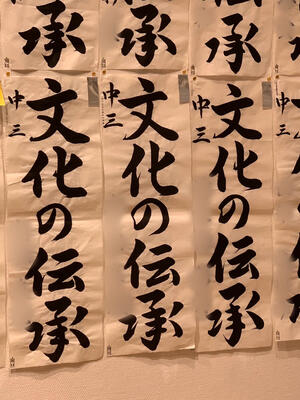 承
承
承
文化の伝承
中三
文化の伝承
中三
文化の伝承
中三